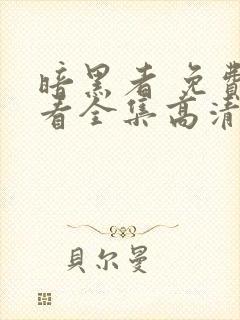 暗黑者免費
看全集高清
貝尔曼